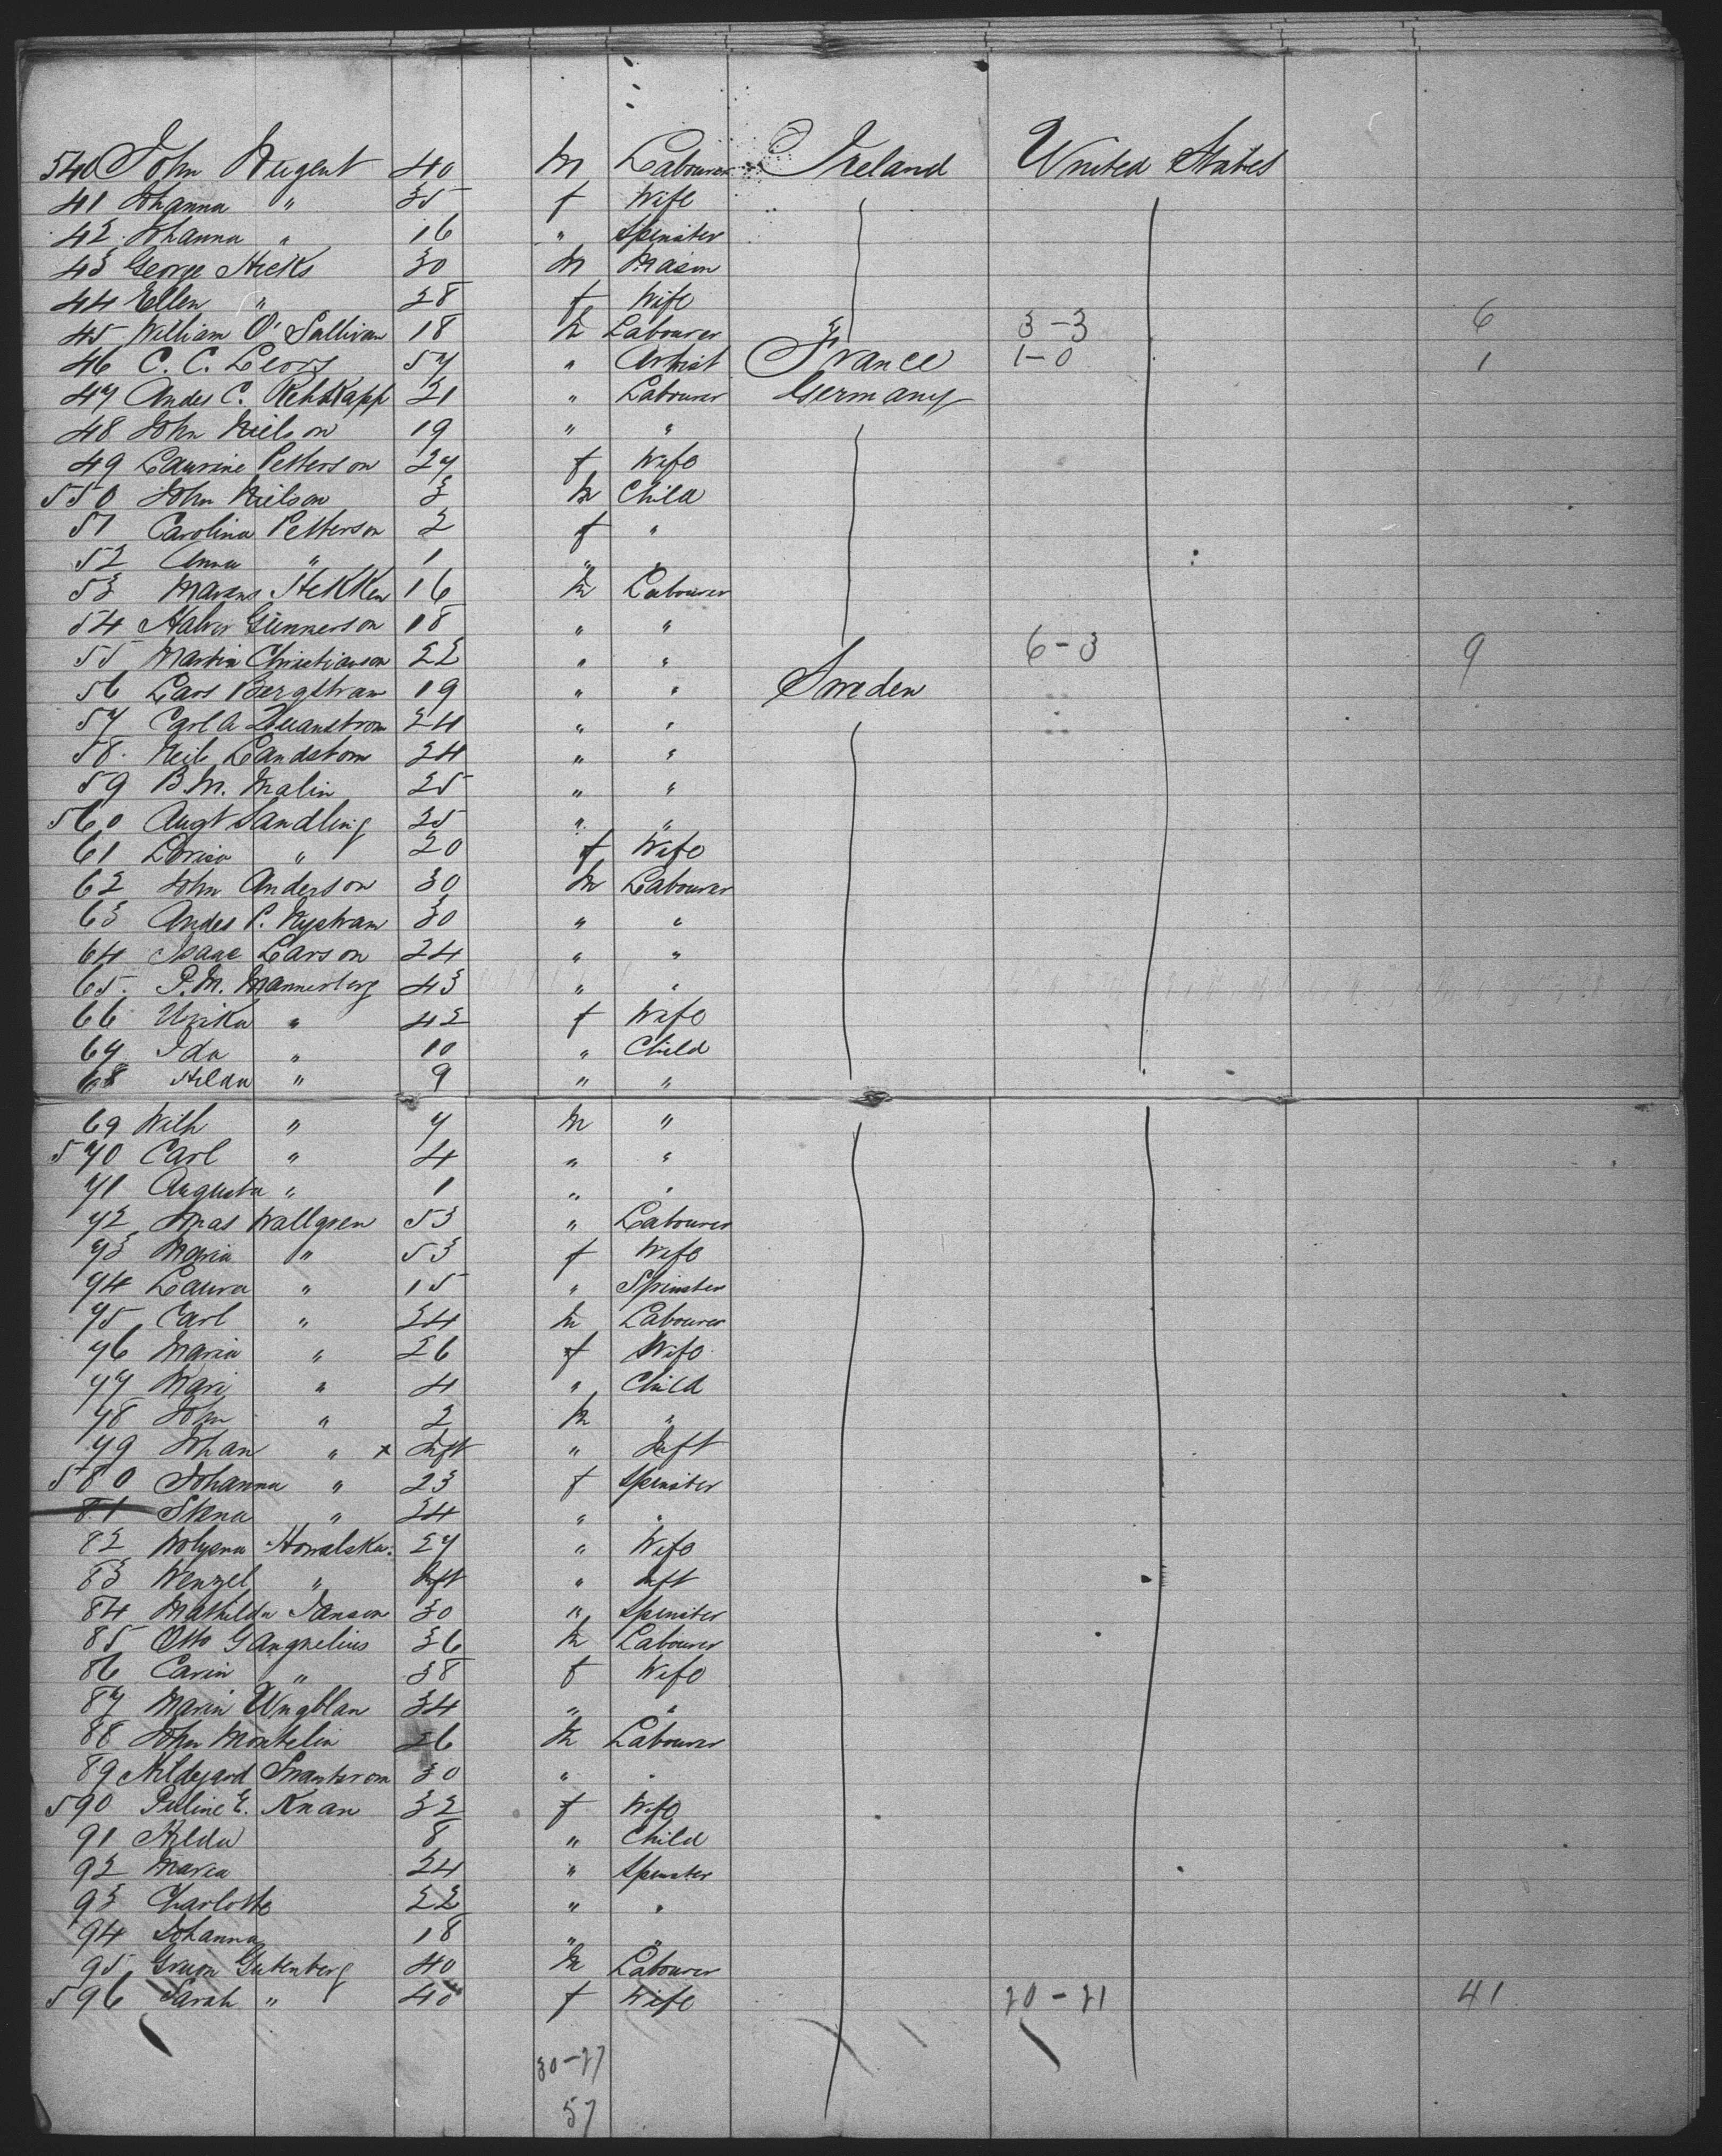 540 John Nugent 40 m Labourer Ireland United States
41 Johanna " 35 f Wife
42 Johanna " 16 " Spinster
43 George Hicks 30 m Mason
44 Ellen " 28 f Wife
45 William O'Sullivan 18 m Labourer 3-3 6
46 C. C. 57 " Artist France 1-0 1
47 Andes C. 21 " Labourer Germany
48 John Nielson 19 " "
49 Laurine Petterson 27 f Wife
550 John Nielson 3 m Child
51 Carolina Petterson 2 f "
52 Anna " 1 " "
53 16 m Labourer
54 Halvor Gunnerson 18 " "
55 Martin Christianson 22 " " 6-3 9
56 Lars Bergstram 19 " " Sweden
57 Carl A 24 " "
58 Neil Landstom 24 " "
59 B. M. Malin 25 " "
560 Augt Sandling 25 " "
61 Lovisa " 20 f Wife
62 John Anderson 30 m Labourer
63 Andes P. Nystram 30 " "
64 Isaac Larson 24 " "
65 P. M. Mannerberg 43 " "
66 Ulrika " 42 f Wife
67 Ida " 10 " Child
68 Hilda " 9 " "
69 Wilh " 7 m "
570 Carl " 4 " "
71 Augusta " 1 " "
72 Jonas Wallgren 53 " Labourer
73 Maria " 53 f Wife
74 Laura " 15 " Spinster
75 Carl " 24 m Labourer
76 Maria " 26 f Wife
77 Mari " 4 " Child
78 John " 2 m "
79 Johan " x Inft " Inft
580 Johanna " 23 f Spinster
81 Stena " 24 " "
82 Howalska 27 " Wife
83 Wenzel " Inft " Inft
84 Mathilda Janson 30 " Spinster
85 Otto G Angnelius 36 m Labourer
86 Carin " 38 f Wife
87 Maria Ungblan 34 " "
88 John Montelin 26 m Labourer
89 Hildegard 30 " "
590 E. Knan 32 f Wife
91 Hilda 8 " Child
92 Maria 24 " Spinster
93 Charlotte 22 " "
94 Johanna 18 " "
95 Gutenberg 40 m Labourer
596 Sarah " 40 f Wife 20-21 41
30-27
57